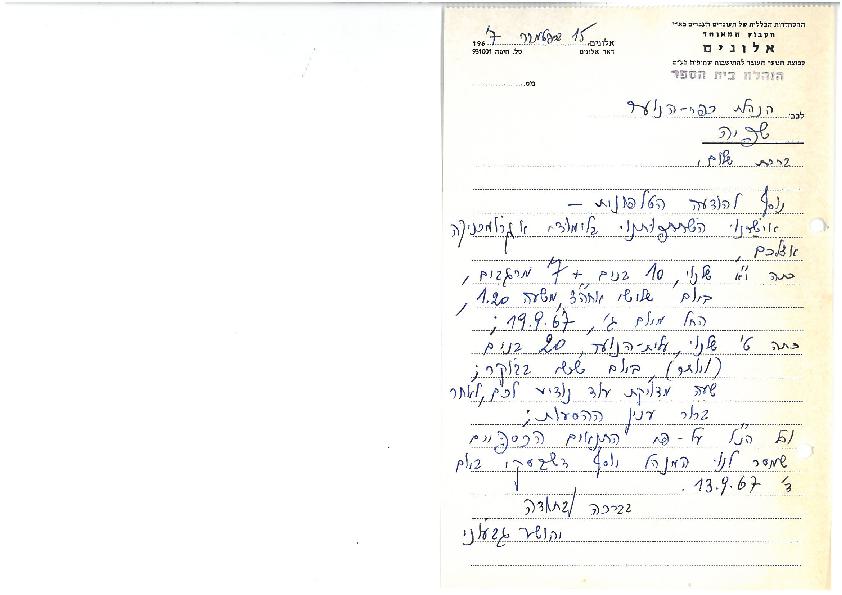 ההסתדרות הכללית של העובדים העברים בא״י
הקבוץ המאוחד
אלונים
קבוצת הנוער העובד להתישבות שתופית בע״מ
הנהלת בית הספר
אלונים, 15 בספטמבר 1967
דאר אלונים טל. חיפה 931001
מס.
לכב׳ הנהלת כפר-הנוער
שפיה
ברכת שלום,
נוסף להודעה הטלפונית –
אישרנו השתתפותנו בלימודי אגרומכניקה
אצלכם,
כתה י״א שלנו, 10 בנים + 7 מרגבים,
ביום שלישי אחה״צ, משעה 1.20,
החל מיום ג׳, 19.9.67;
כתה ט׳ שלנו, עלית-הנוער, 20 בנים
(ויותר), ביום ששי בבוקר;
שעה מדויקת עוד נודיע לכם, לאחר
ברור ענין ההסעות;
וכל הנ״ל על-פי התנאים הכספיים
שמסר לנו המנהל יוסף ביום
ד׳ 13.9.67.
בברכה ובתודה
יהושע גבעוני